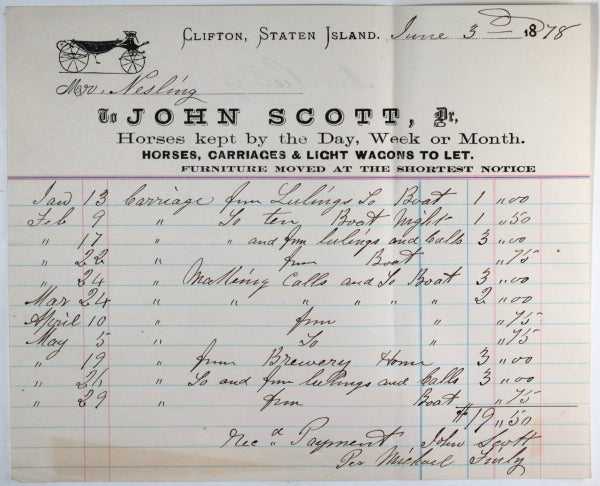 Clifton, Staten Island. June 3 1878
Mr. Nesling
To JOHN SCOTT, Dr,
Horses kept by the Day, Week or Month.
HORSES, CARRIAGES & LIGHT WAGONS TO LET.
FURNITURE MOVED AT THE SHORTEST NOTICE
Jan 13 Carriage from Lulings To Boat 1 „00
Feb 9 „ To ten Boat Night 1 „50
„ 17 „ „ and from lulings and Calls 3 „00
„ 22 „ from Boat „75
„ 24 „ Making Calls and To Boat 3 „00
Mar 24 „ „ „ „ „ „ 2 „00
April 10 „ from „ „75
May 5 „ To „ „75
„ 19 „ from Brewery Home 3 „00
„ 21 „ To and from lulings and Calls 3 „00
„ 29 „ from Boat „75
$19 „50
Rec'd Payment John Scott
Per Michael Finly